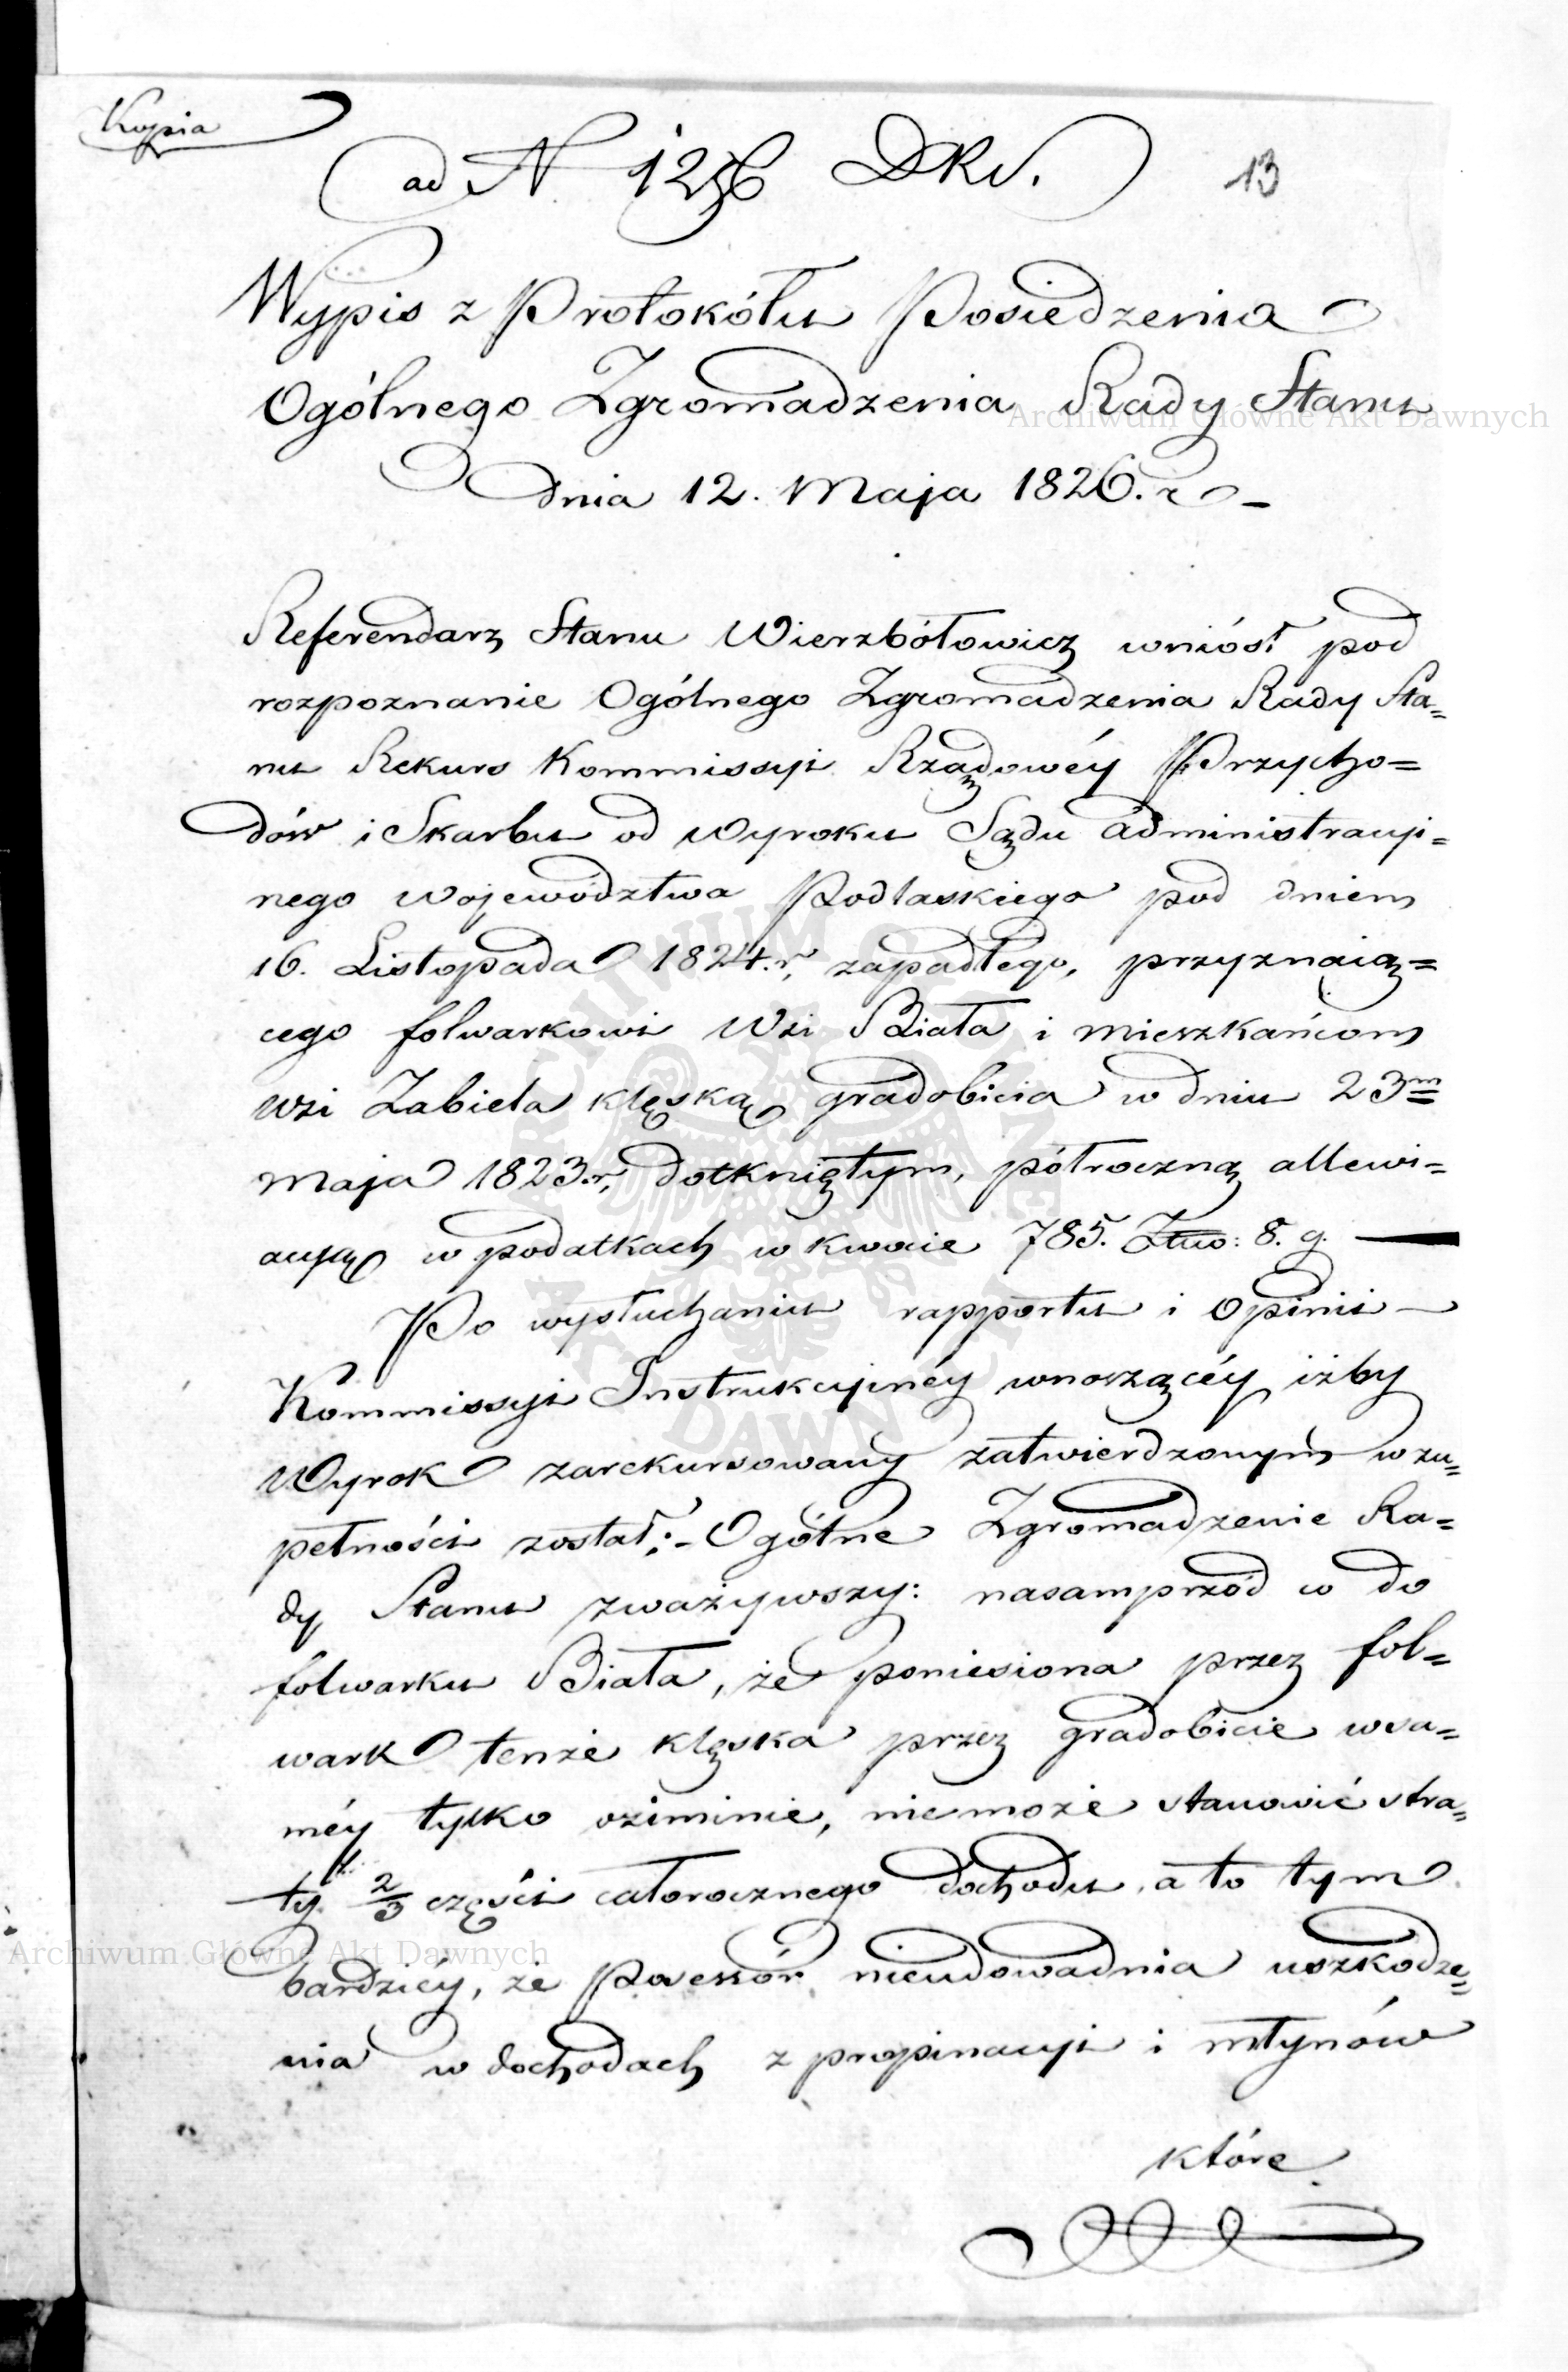 Kopia
ad N 1256 DRS.
13
Wypis z Protokółu Posiedzenia
Ogólnego Zgromadzenia Rady Stanu
dnia 12. Maja 1826. r
Referendarz Stanu Wierzbółowicz wniósł pod
rozpoznanie Ogólnego Zgromadzenia Rady Sta=
nu Rekurs Kommissyi Rządowéy Przycho=
dów i Skarbu od wyroku Sądu administracyi=
nego województwa Podlaskiego pod dniem
16. Listopada 1824. r, zapadłego, przyznaią=
cego folwarkowi Wsi Biała i mieszkańcom
wsi Zabiela klęską gradobicia w dniu 23m
maja 1823. r, dotkniętym, półroczną allewi=
acyą w podatkach w kwocie 785. Złto: 8. g.
Po wysłuchaniu rapportu i opinii
Kommissyi Instrukcyinéy wnoszącéy iżby
Wyrok zarekursowany zatwierdzonym w zu=
pełności został; - Ogólne Zgromadzenie Ra=
dy Stanu zważywszy: nasamprzód w do
folwarku Biała, że poniesiona przez fol=
wark tenże klęska przez gradobicie w sa=
méy tylko oziminie, niemoże stanowić stra=
ty 2/3 części całorocznego dochodu, a to tym
bardziéy, że possessor nieudowadnia uszkodze=
nia w dochodach z propinacyi i młynów
które
Archiwum Główne Akt Dawnych
Archiwum Główne Akt Dawnych
ARCHIWUM GŁÓWNE AKT DAWNYCH